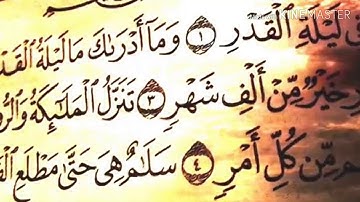 لَيْلَةِ ٱلْقَدْرِ ١ وَمَآ أَدْرَىٰكَ مَا لَيْلَةُ ٱلْقَدْ
خَيْرٌ مِّنْ أَلْفِ شَهْرٍ ٣ تَنَزَّلُ ٱلْمَلَٰٓئِكَةُ وَٱلرُّو
م مِّن كُلِّ أَمْرٍ ٤ سَلَٰمٌ هِىَ حَتَّىٰ مَطْلَعِ ٱلْ
KINEMASTER